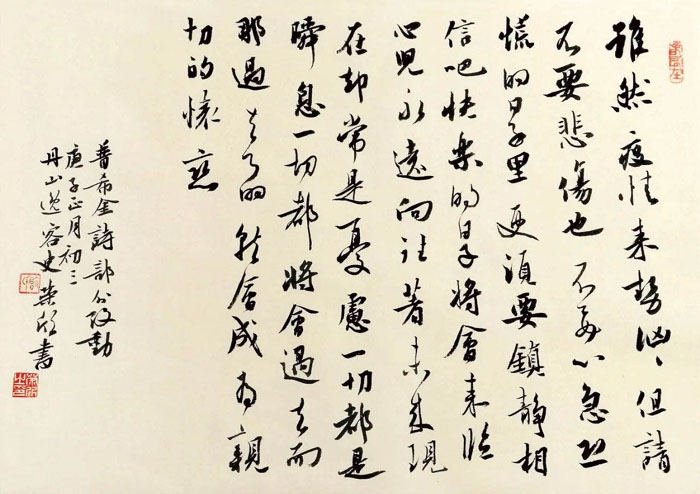 雖然疫情来勢汹〻但請
不要悲傷也不要心急恐
慌的日子里更須要鎮靜相
信吧快樂的日子將會来臨
心児永遠向往著未来現
在却常是憂慮一切都是
瞬息一切都將會過去而
那過去了的就會成為親
切的懷戀
普希金詩部分改動
庚子正月初三
丹山逸客史荣欣書